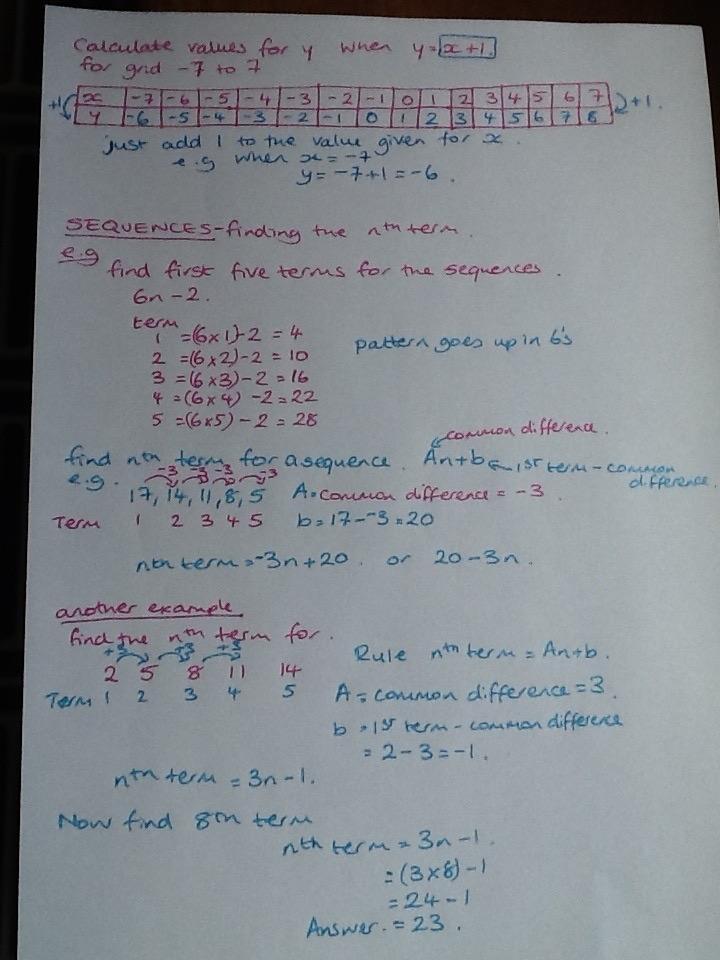 Calculate values for y when y=x+1
for grid -7 to 7
+1 x -7 -6 -5 -4 -3 -2 -1 0 1 2 3 4 5 6 7 +1.
y -6 -5 -4 -3 -2 -1 0 1 2 3 4 5 6 7 8
just add 1 to the value given for x.
e.g when x=-7
y=-7+1=-6.
SEQUENCES-finding the nth term.
e.g
find first five terms for the sequences.
6n-2.
term
1 =(6x1)-2 = 4
2 =(6x2)-2 = 10
pattern goes up in 6's
3 =(6x3)-2 = 16
4 =(6x4)-2 = 22
5 =(6x5)-2 = 28
common difference.
find nth term for a sequence. An+b ← 1st term - common difference.
e.g. -3 -3 -3 -3
17, 14, 11, 8, 5 A = common difference = -3.
Term 1 2 3 4 5 b = 17--3 = 20
nth term = -3n+20. or 20-3n.
another example
find the nth term for.
+3 +3 +3
Rule nth term = An+b.
2 5 8 11 14
Term 1 2 3 4 5
A = common difference = 3.
b = 1st term - common difference
= 2-3 = -1.
nth term = 3n-1.
Now find 8th term
nth term = 3n-1.
= (3x8)-1
= 24-1
Answer. = 23.